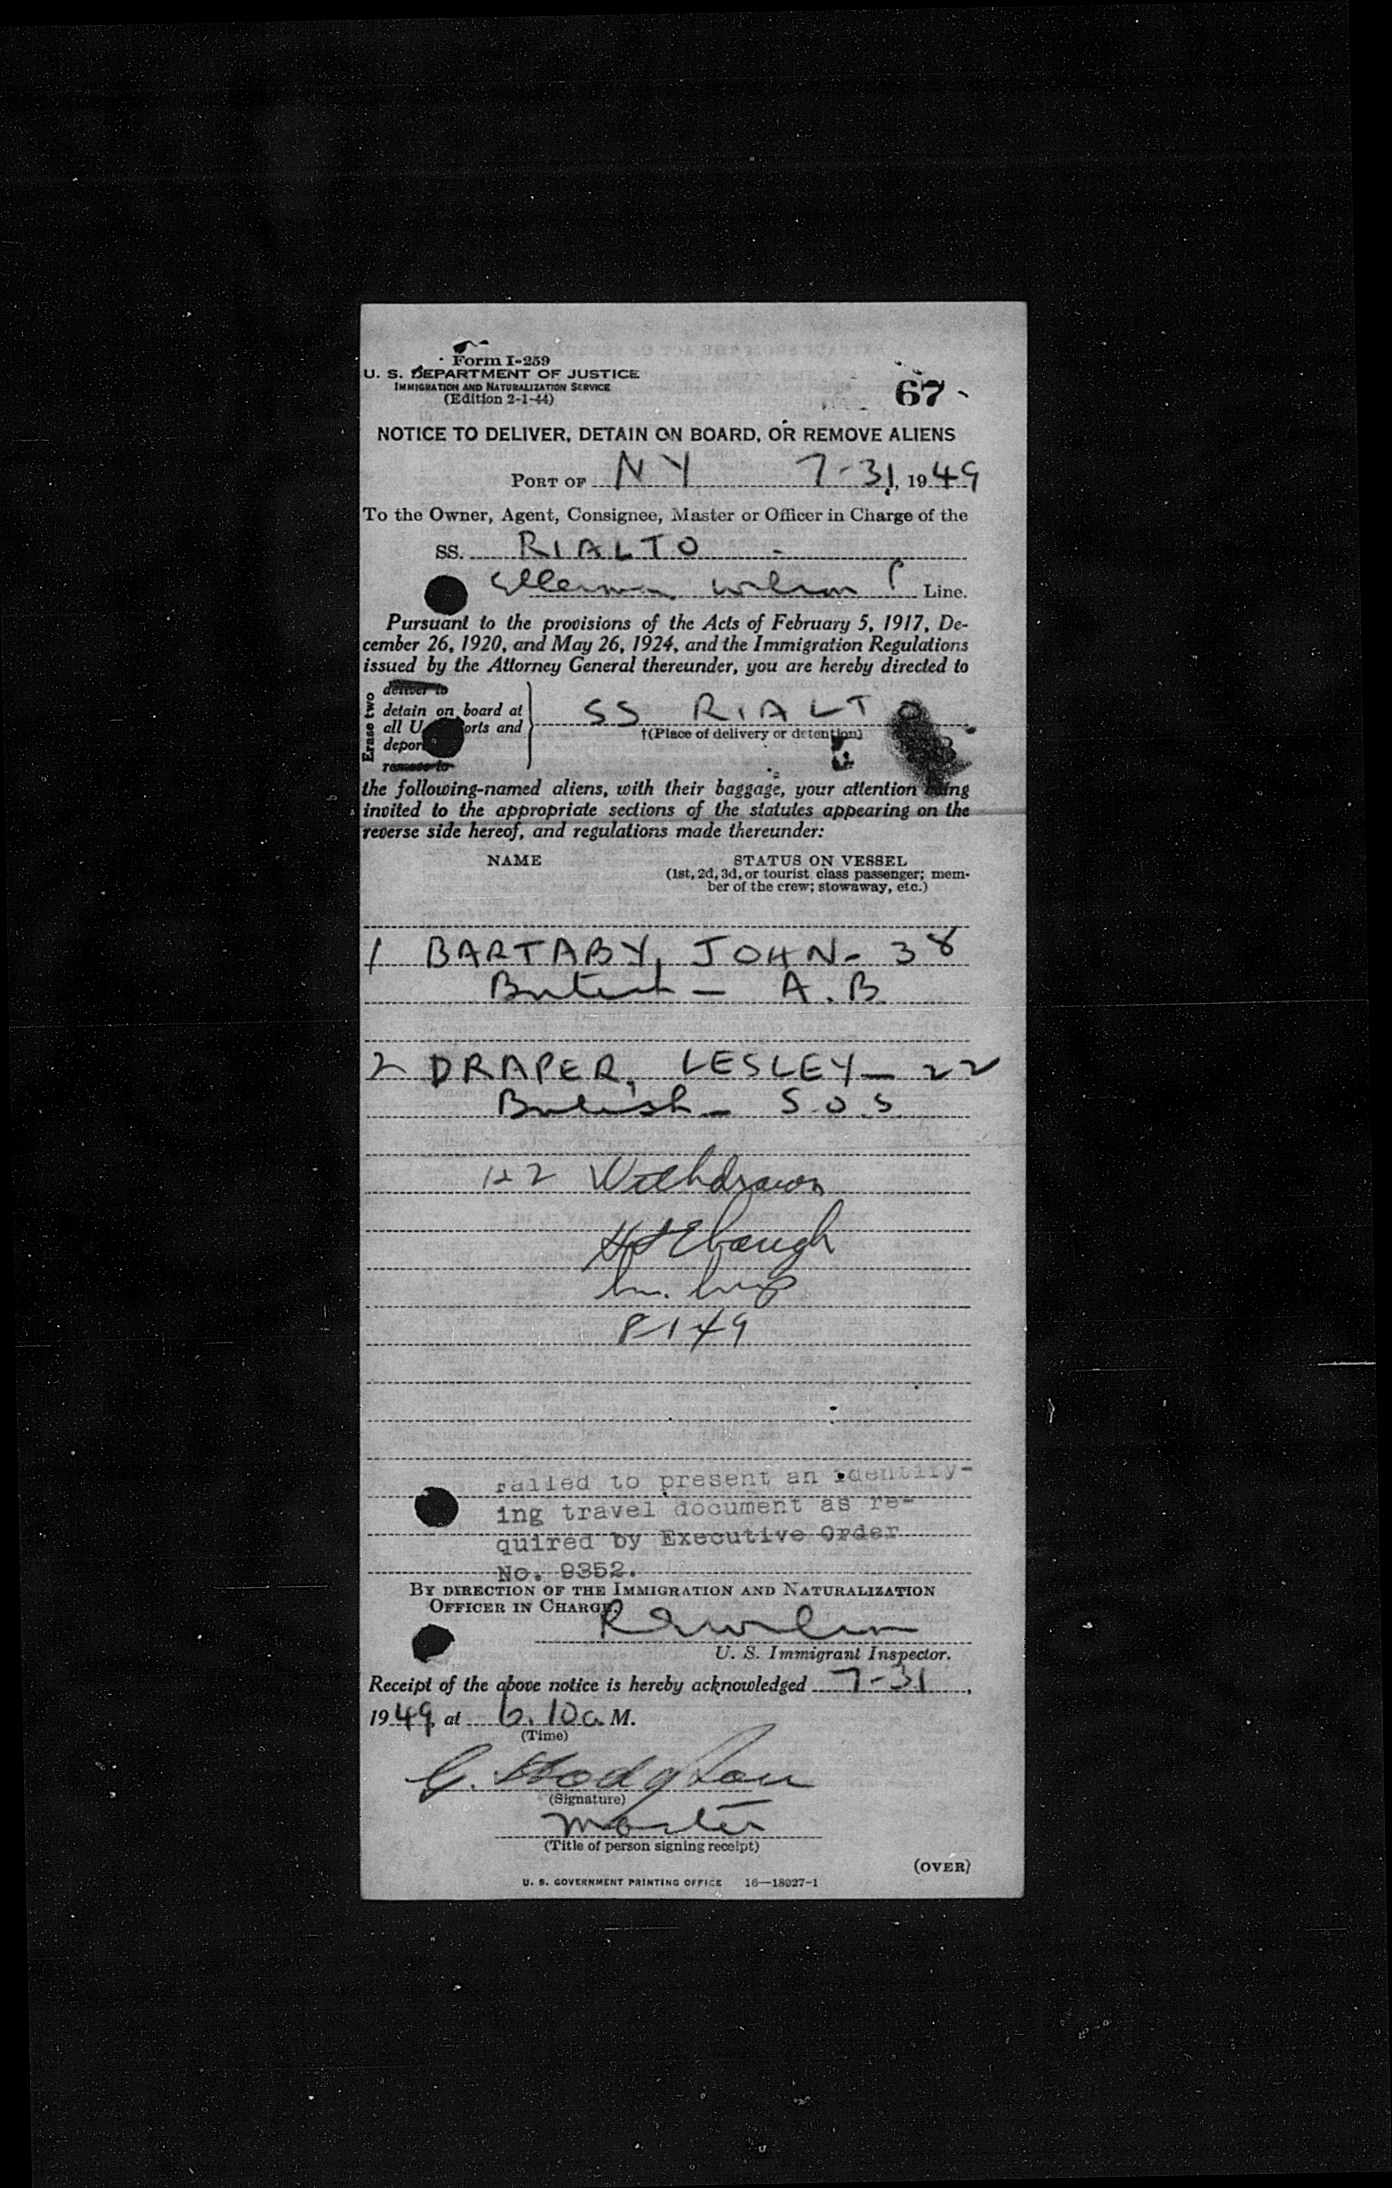 Form I-259
U. S. DEPARTMENT OF JUSTICE
IMMIGRATION AND NATURALIZATION SERVICE
(Edition 2-1-44)
67
NOTICE TO DELIVER, DETAIN ON BOARD, OR REMOVE ALIENS
PORT OF NY 7-31, 1949
To the Owner, Agent, Consignee, Master or Officer in Charge of the
SS. RIALTO
Ellerman Wilson Line.
Pursuant to the provisions of the Acts of February 5, 1917, De-
cember 26, 1920, and May 26, 1924, and the Immigration Regulations
issued by the Attorney General thereunder, you are hereby directed to
Erase two
deliver to
detain on board at
all U orts and
depor
remove to
SS RIALTO
†(Place of delivery or detention)
the following-named aliens, with their baggage, your attention being
invited to the appropriate sections of the statutes appearing on the
reverse side hereof, and regulations made thereunder:
NAME STATUS ON VESSEL
(1st, 2d, 3d, or tourist class passenger; mem-
ber of the crew; stowaway, etc.)
1 BARTABY, JOHN - 38
British - A.B.
2 DRAPER, LESLEY - 22
British - S.O.S.
1+2 Withdrawn
Ebaugh
Im. Insp
8-1-49
Failed to present an identify-
ing travel document as re-
quired by Executive Order
No. 9352.
BY DIRECTION OF THE IMMIGRATION AND NATURALIZATION
OFFICER IN CHARGE.
U. S. Immigrant Inspector.
Receipt of the above notice is hereby acknowledged 7-31,
1949, at 6.10 a. M.
(Time)
G. Hodgson
(Signature)
Master
(Title of person signing receipt)
(OVER)
U. S. GOVERNMENT PRINTING OFFICE 16—18027-1